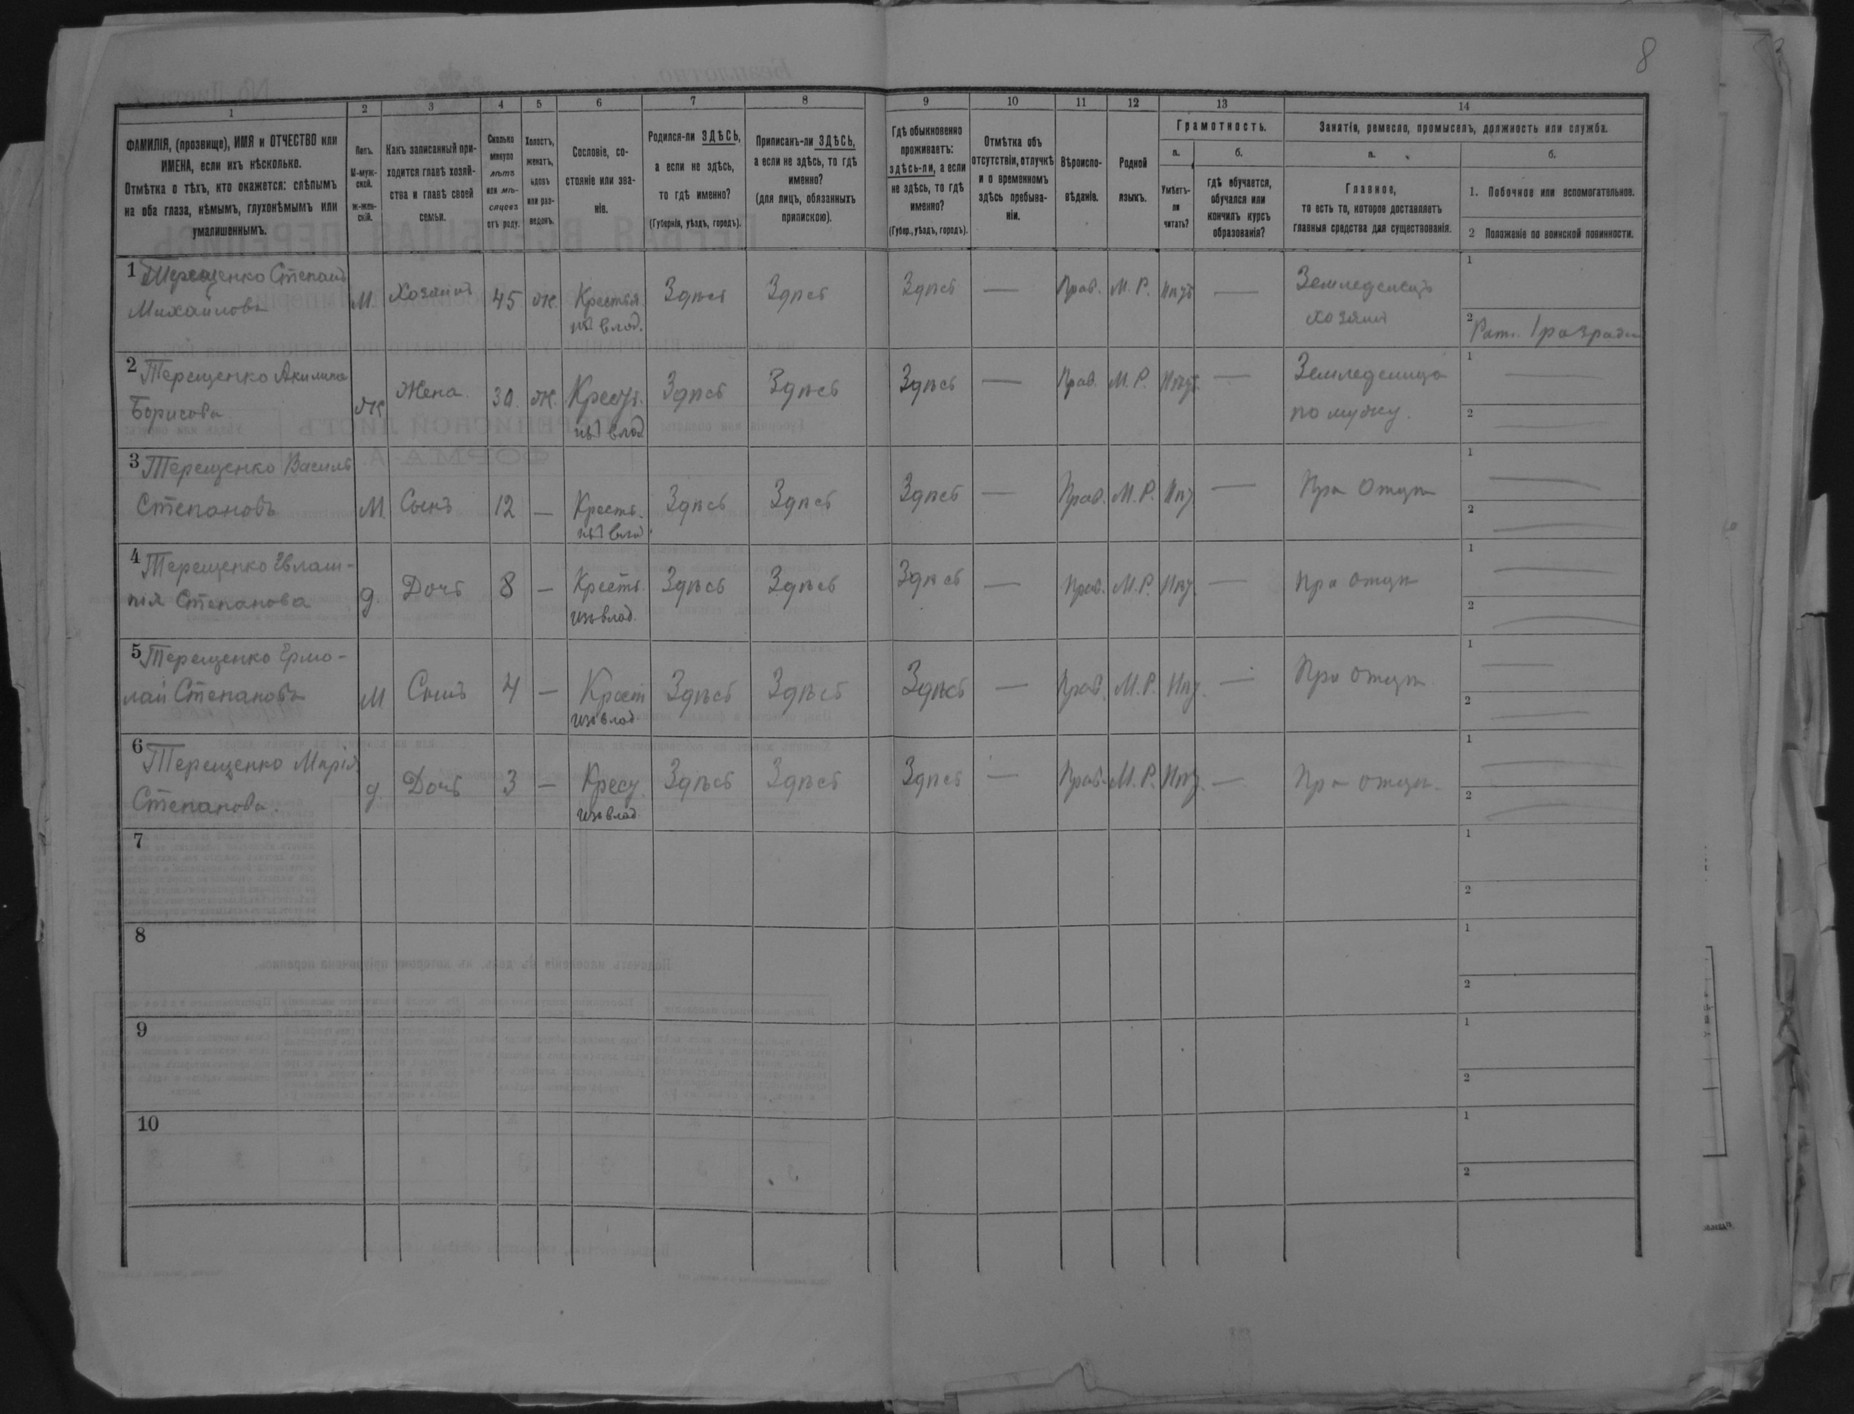 8
1 2 3 4 5 6 7 8 9 10 11 12 13 14
ФАМИЛІЯ, (прозвище), ИМЯ и ОТЧЕСТВО или
ИМЕНА, если ихъ нѣсколько.
Отмѣтка о тѣхъ, кто окажется: слѣпымъ
на оба глаза, нѣмымъ, глухонѣмымъ или
умалишеннымъ.
Полъ.
М-муж-
ской.
Ж-жен-
скій.
Какъ записанный при-
ходится главѣ хозяй-
ства и главѣ своей
семьи.
Сколько
минуло
лѣтъ
или мѣ-
сяцевъ
отъ роду.
Холостъ,
женатъ,
вдовъ
или раз-
веденъ.
Сословіе, со-
стояніе или зва-
ніе.
Родился-ли ЗДѢСЬ,
а если не здѣсь,
то гдѣ именно?
(Губернія, уѣздъ, городъ).
Приписанъ-ли ЗДѢСЬ,
а если не здѣсь, то гдѣ
именно?
(для лицъ, обязанныхъ
припискою).
Гдѣ обыкновенно
проживаетъ:
здѣсь-ли, а если
не здѣсь, то гдѣ
именно?
(Губер., уѣздъ, городъ).
Отмѣтка объ
отсутствіи, отлучкѣ
и о временномъ
здѣсь пребыва-
ніи.
Вѣроиспо-
вѣданіе.
Родной
языкъ.
Грамотность.
а. б.
Умѣетъ-
ли
читать?
гдѣ обучается,
обучался или
кончилъ курсъ
образованія?
Занятіе, ремесло, промыселъ, должность или служба.
а. б.
Главное,
то есть то, которое доставляетъ
главныя средства для существованія.
1. Побочное или вспомогательное.
2 Положеніе по воинской повинности.
1 Терещенко Степанъ М. Хозяинъ 45 Ж. Крестья. Здѣсь Здѣсь Здѣсь — Прав. М. Р. Нѣтъ — Земледелецъ 1
Михайловъ изъ влад. хозяин 2 Рат. 1 разряда
2 Терещенко Акилина Ж Жена 30. Ж. Крест. Здѣсь Здѣсь Здѣсь — Прав. М. Р. Нѣт — Земледелица 1 —
Борисова изъ влад по мужу. 2 —
3 Терещенко Василь М. Сынъ 12 — Кресть. Здѣсь Здѣсь Здѣсь — Прав. М. Р. — При отцѣ 1 —
Степановъ изъ влад 2 —
4 Терещенко Евлам- д. Дочь 8 — Кресть. Здѣсь Здѣсь Здѣсь — Прав. М. Р. — При отцѣ 1 —
пія Степанова изъ влад. 2 —
5 Терещенко Ермо- М Сынъ 4 — Крест Здѣсь Здѣсь Здѣсь — Прав. М. Р. — При отцѣ 1 —
лай Степановъ изъ влад. 2 —
6 Терещенко Марія д. Дочь 3 — Крест. Здѣсь Здѣсь Здѣсь — Прав. М. Р. — При отцѣ. 1 —
Степанова. изъ влад. 2 —
7 1
2
8 1
2
9 1
2
10 1
2